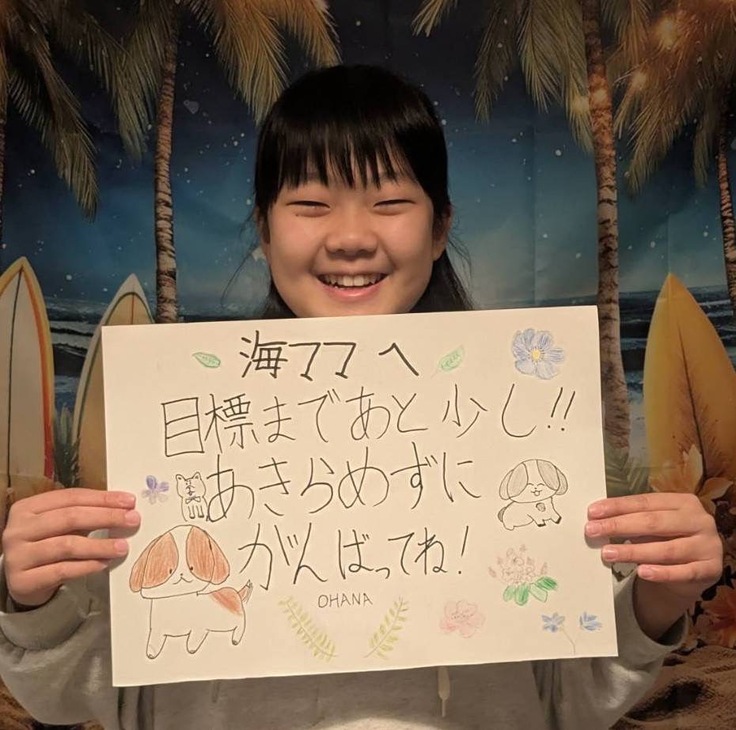 海ママへ
目標まであと少し!!
あきらめずに
がんばってね!
OHANA